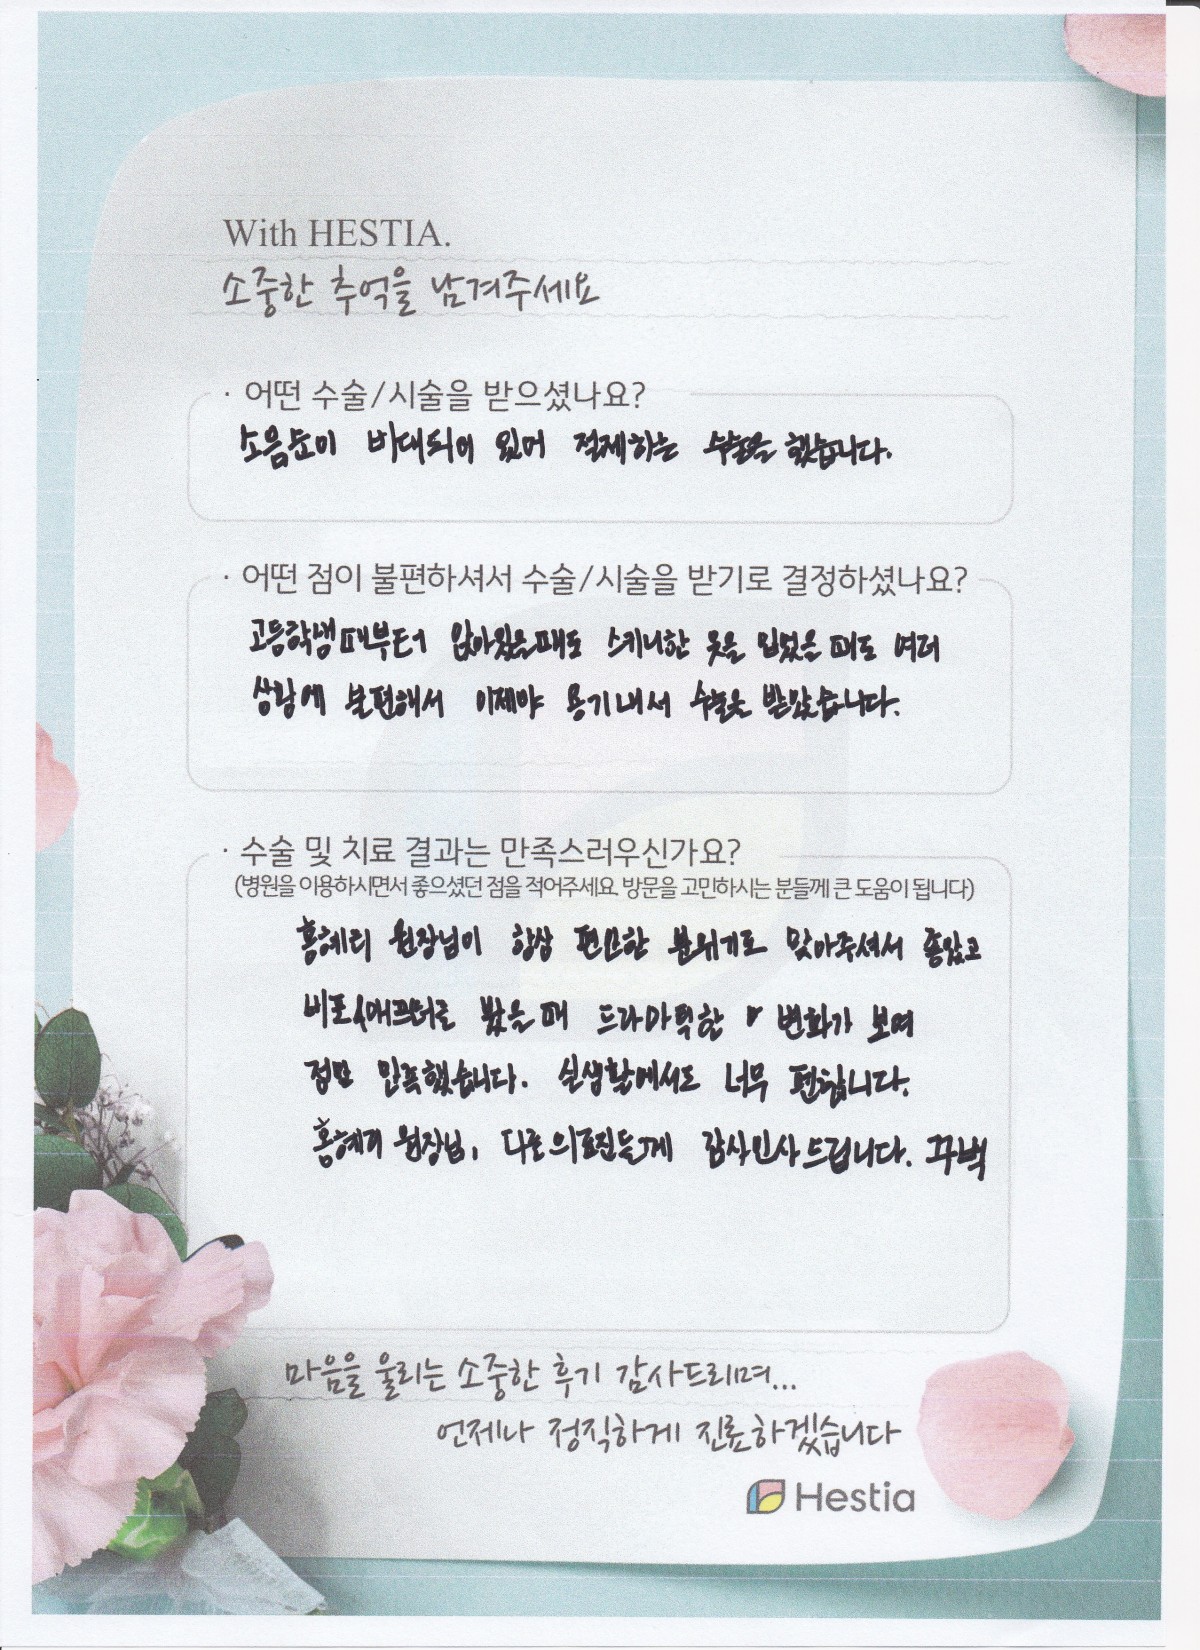 With HESTIA.
소중한 추억을 남겨주세요
· 어떤 수술/시술을 받으셨나요?
소음순이 비대되어 있어 절제하는 수술을 했습니다.
· 어떤 점이 불편하셔서 수술/시술을 받기로 결정하셨나요?
고등학생때부터 앉아있을때도 스키니한 옷을 입었을 때도 여러
상황에 불편해서 이제야 용기내서 수술을 받았습니다.
· 수술 및 치료 결과는 만족스러우신가요?
(병원을 이용하시면서 좋으셨던 점을 적어주세요. 방문을 고민하시는 분들께 큰 도움이 됩니다)
홍혜리 원장님이 항상 편안한 분위기로 맞아주셔서 좋았고
비포/애프터로 봤을 때 드라마틱한 변화가 보여
정말 만족했습니다. 실생활에서도 너무 편합니다.
홍혜리 원장님, 다른의료진들게 감사인사드립니다. 꾸벅
마음을 울리는 소중한 후기 감사드리며...
언제나 정직하게 진료하겠습니다
Hestia